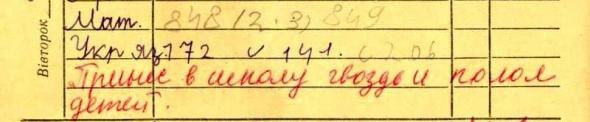 Вівторок
Мат. 848 (2.3) 849
Укр яз 172 v 141.
Принес в школу гвозди и колол
детей.